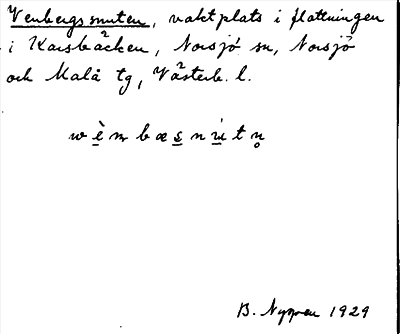 Venbergsnuten, vaktplats i flottningen
i Karsbäcken, Norsjö sn, Norsjö
och Malå tg, Västerb. l.
B. Nygren 1929